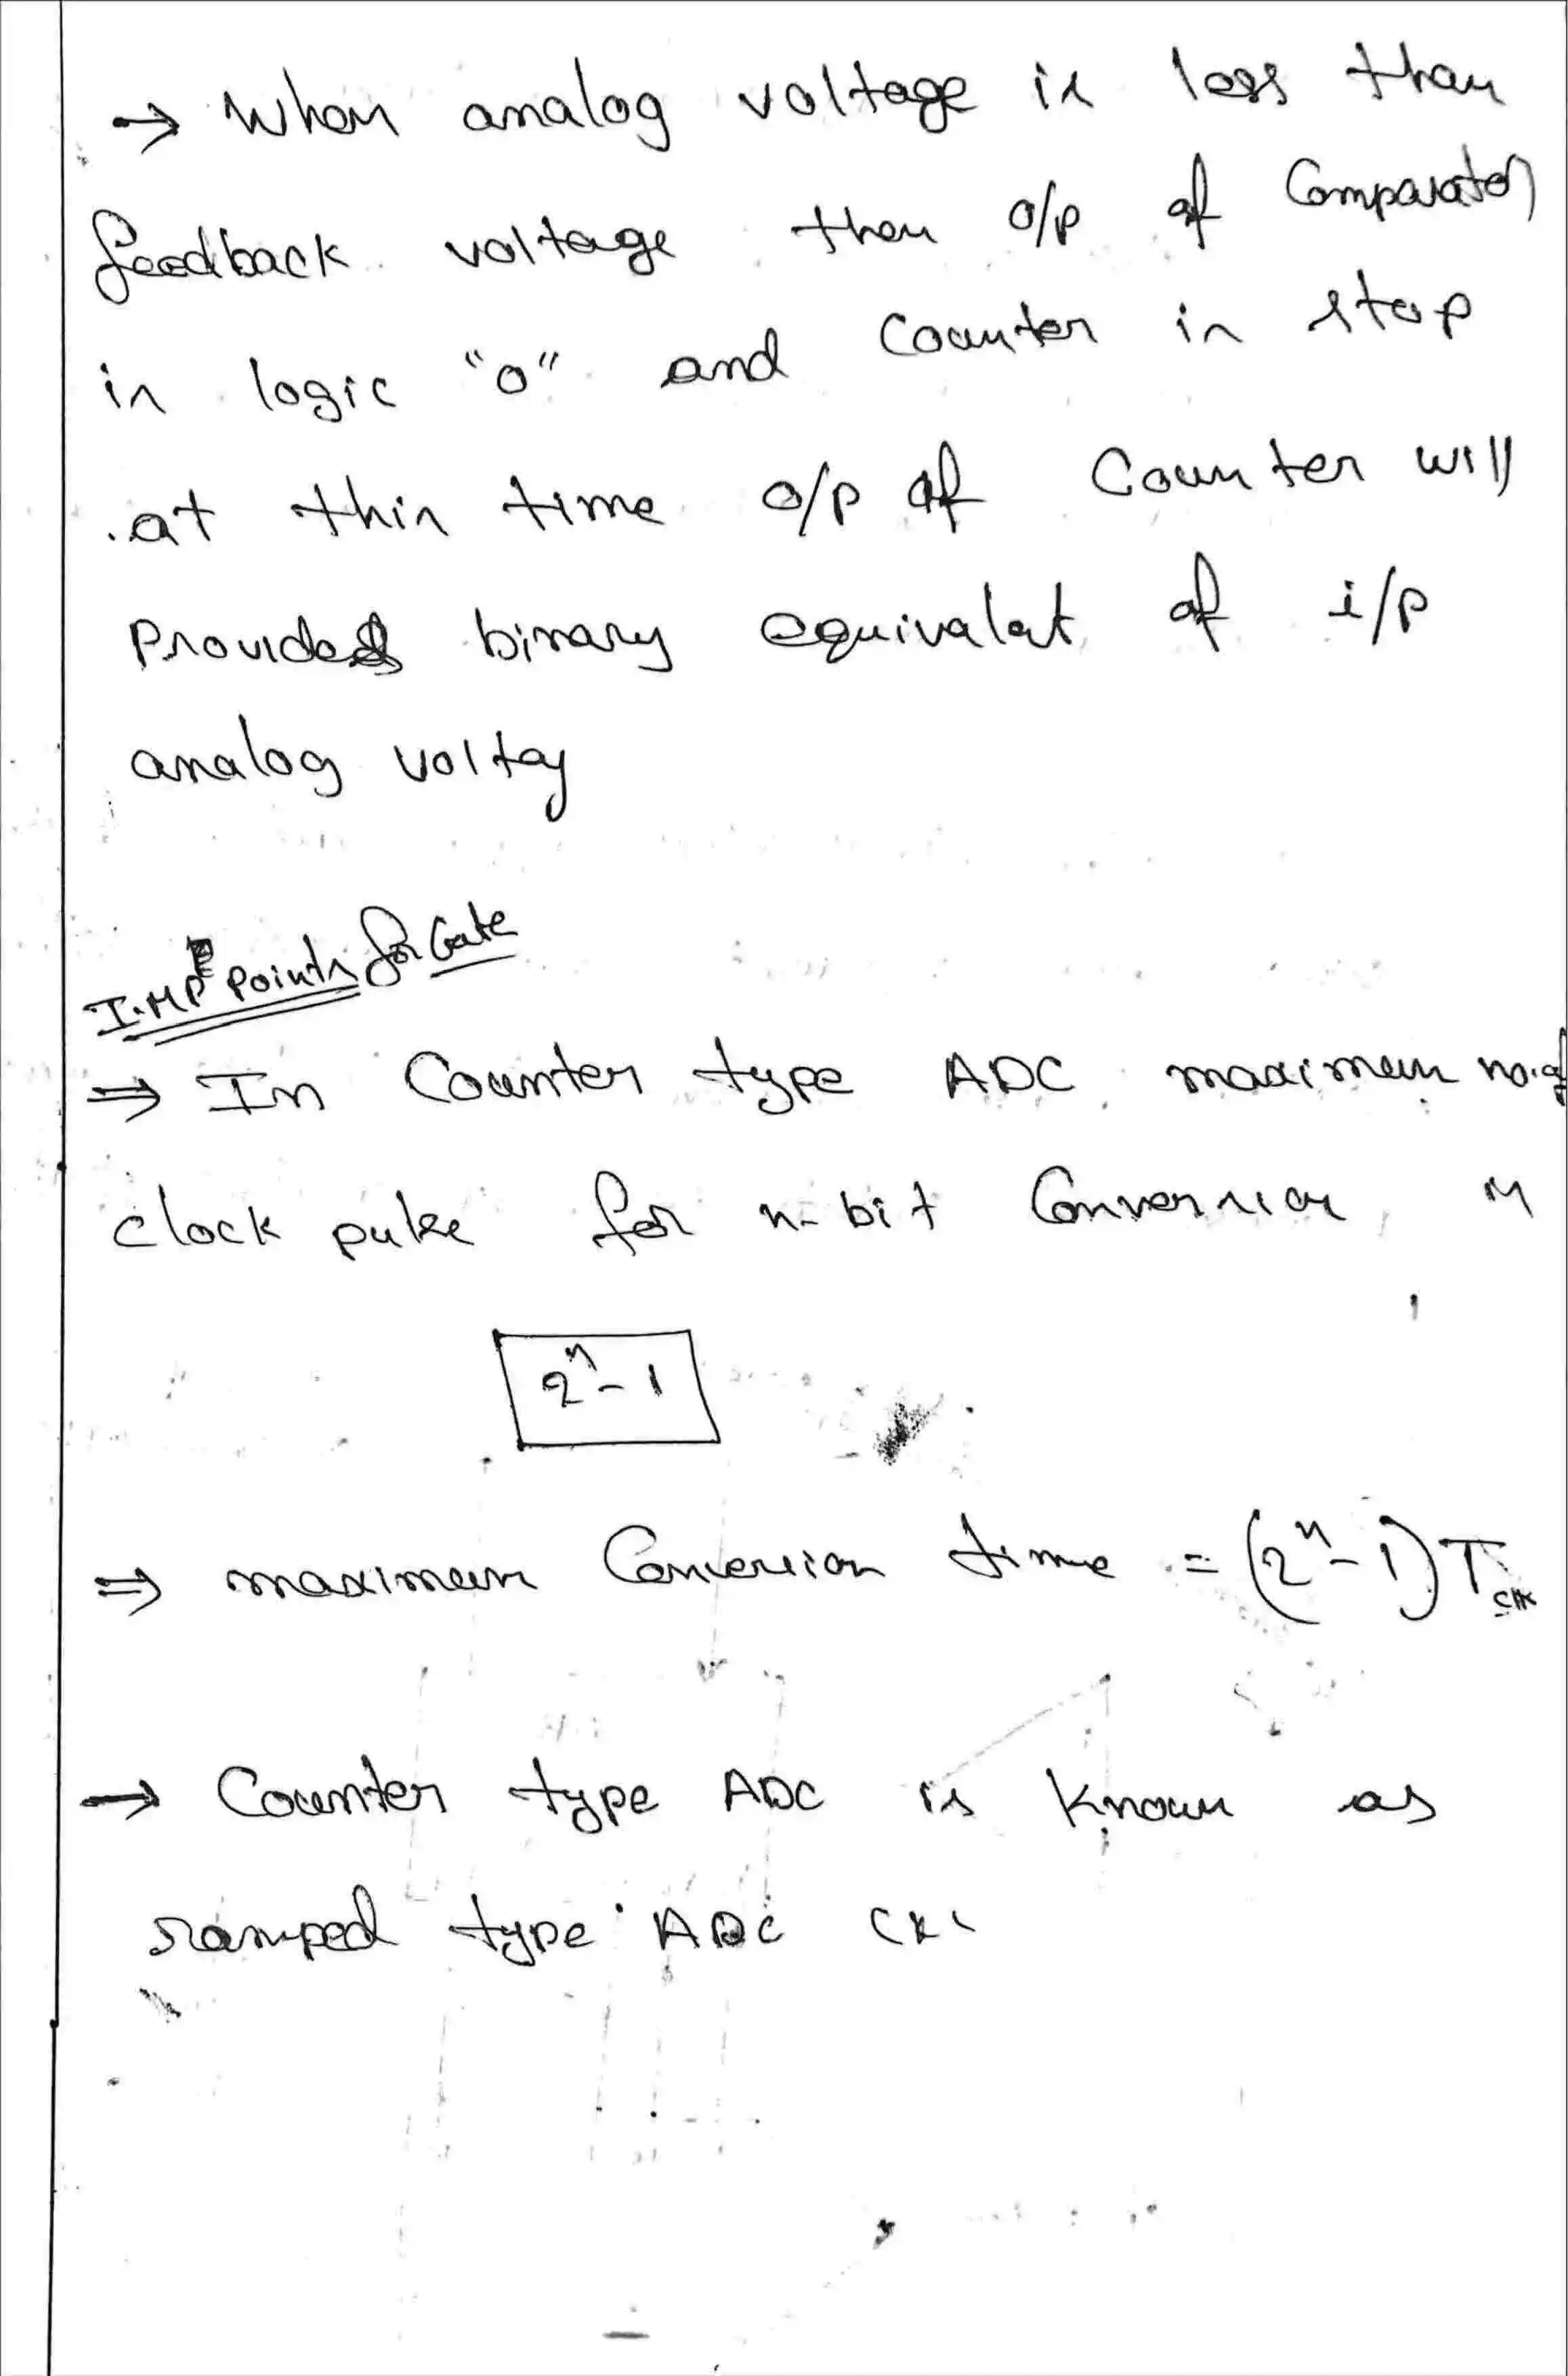 → When analog voltage is less than
feedback voltage then o/p of Comparator
is logic "0" and Counter is stop
at this time o/p of Counter will
Provides binary equivalet of i/p
analog voltag
I.MP Points for Gate
⇒ In Counter type ADC maximum no. of
clock pulse for n-bit Conversion is
2ⁿ - 1
⇒ maximum Conversion time = (2ⁿ - 1) T_clk
→ Counter type ADC is known as
ramped type ADC CKt